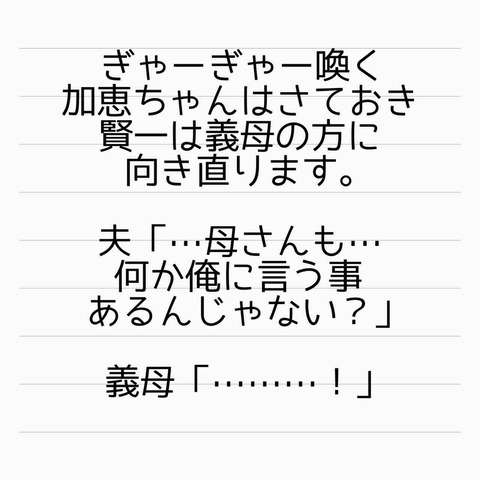 ぎゃーぎゃー喚く
加恵ちゃんはさておき
賢一は義母の方に
向き直ります。
夫「…母さんも…
何か俺に言う事
あるんじゃない？」
義母「………！」